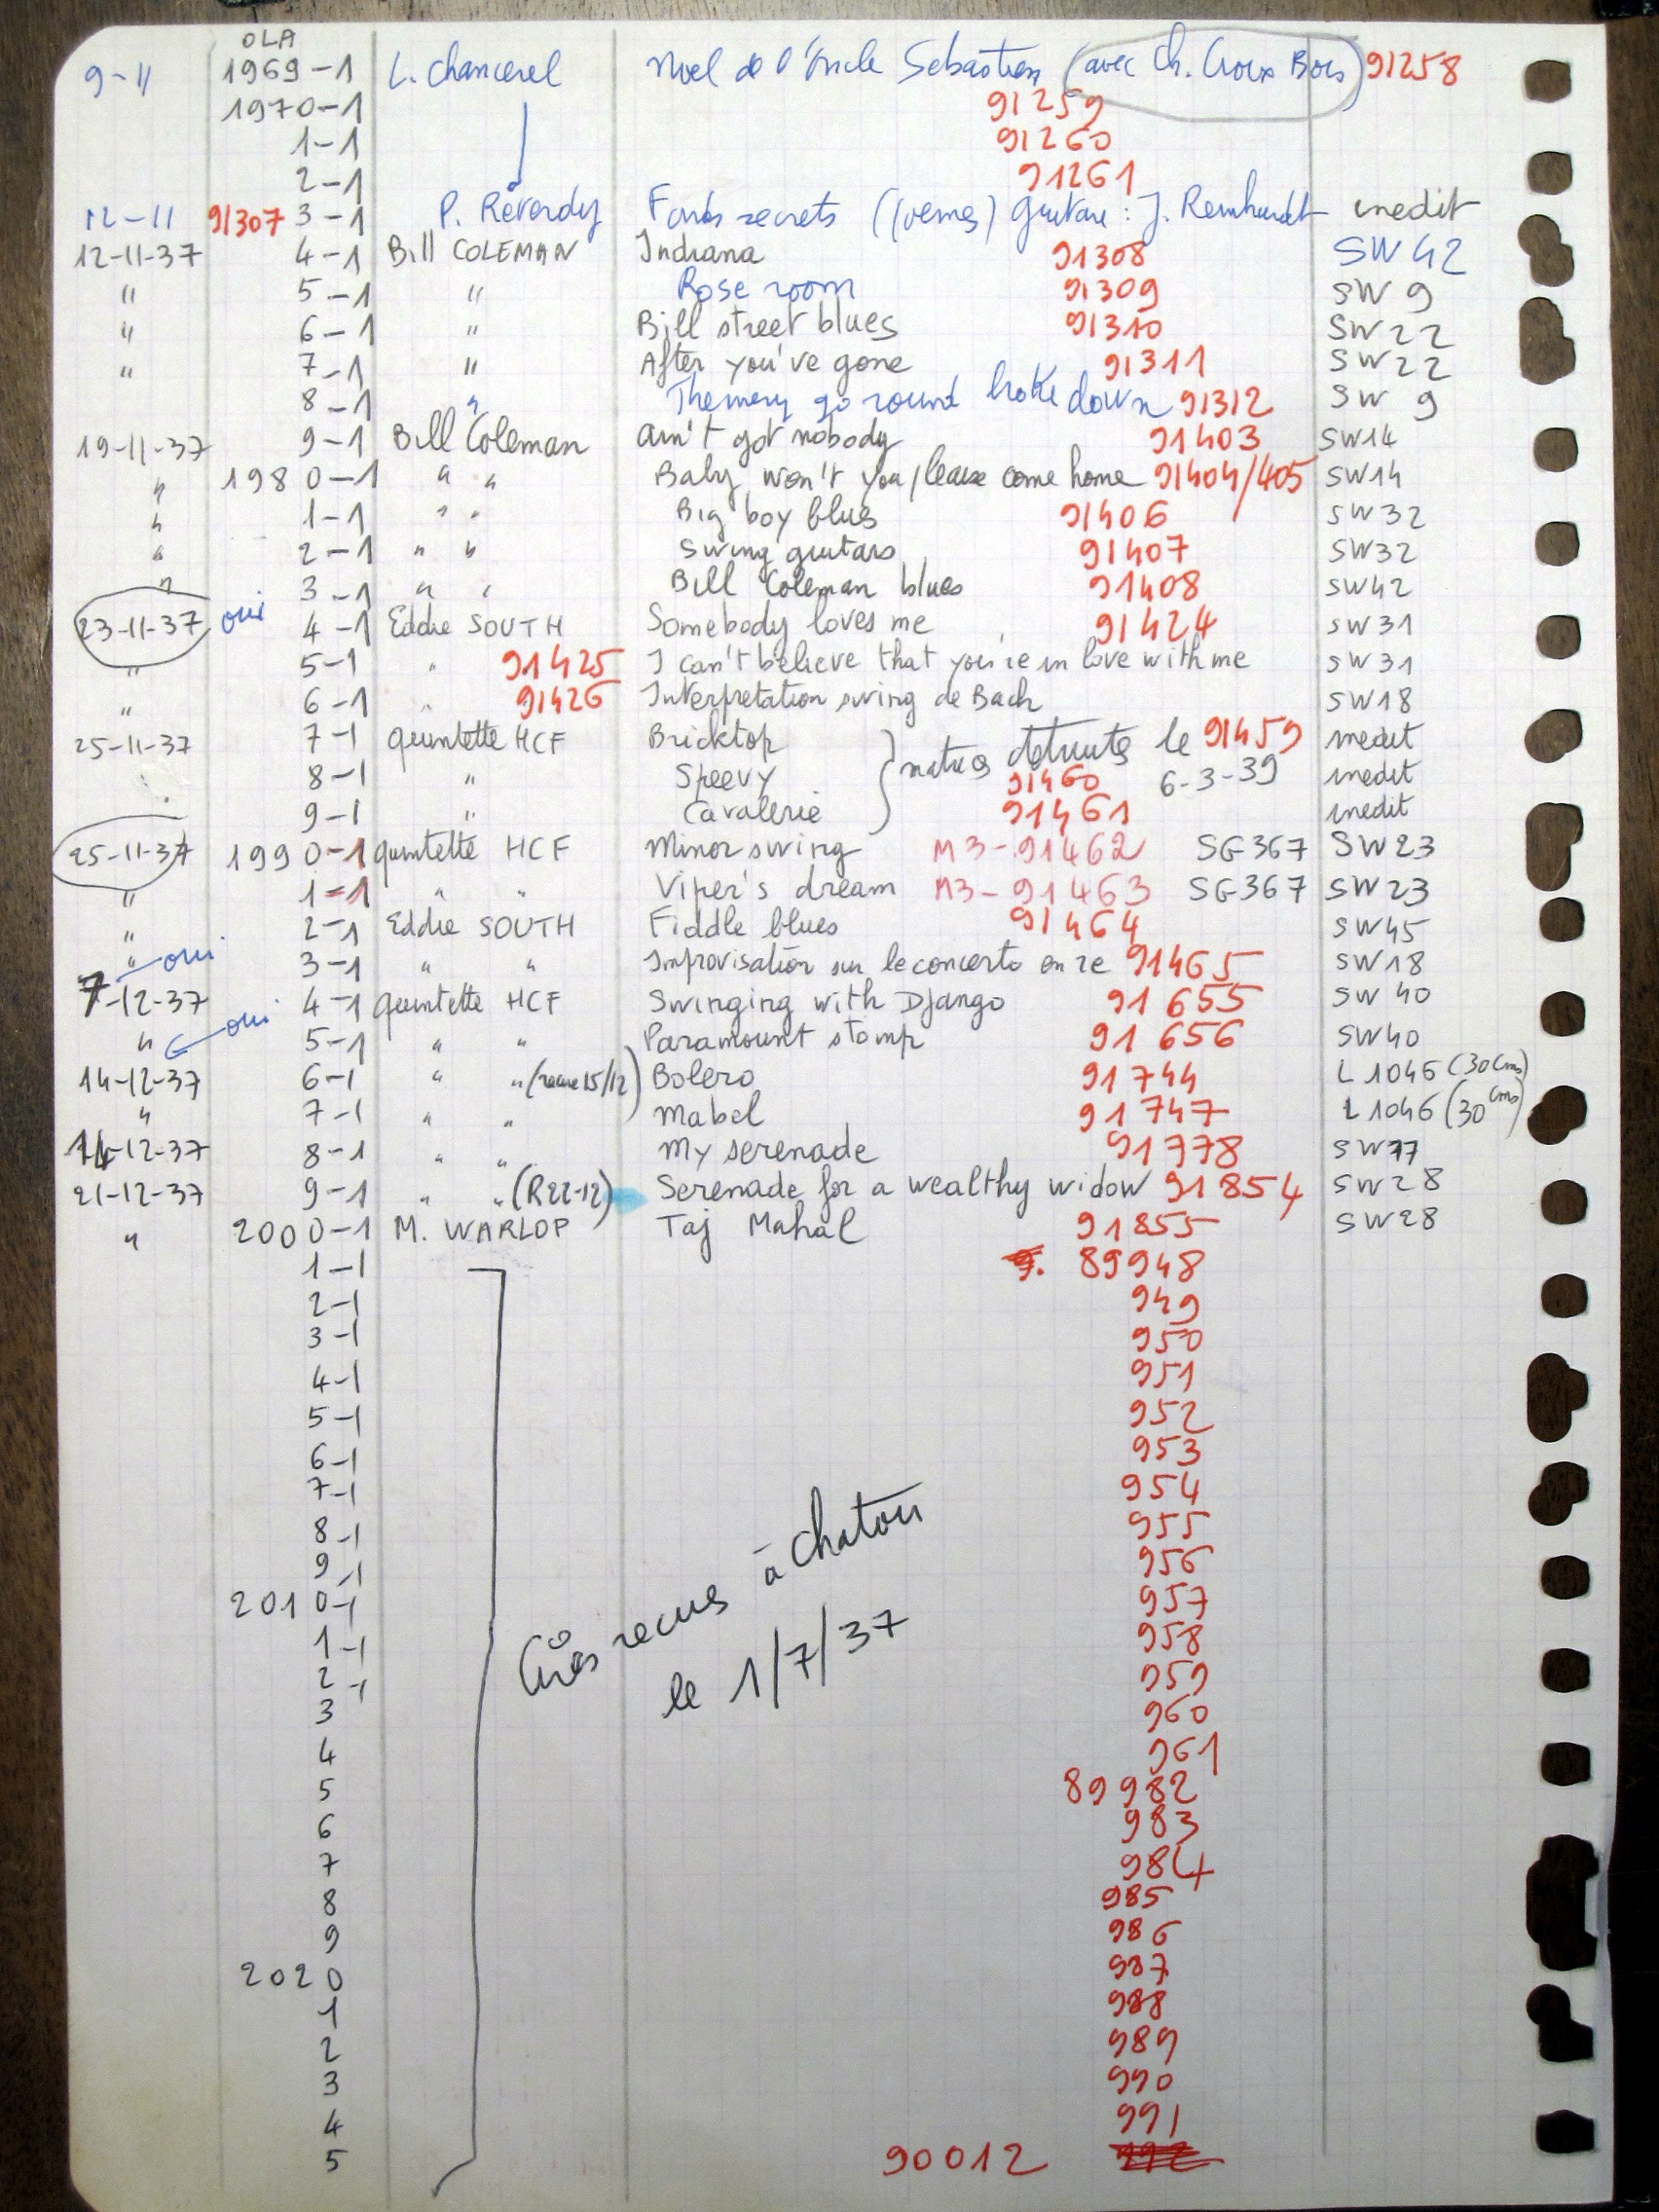 OLA
9-11 1969-1 L. Chancerel Noel de l'Oncle Sebastien (avec Ch. Croix Bois) 91258
1970-1 91259
1-1 91260
2-1 91261
12-11 91307 3-1 P. Reverdy Fonds secrets guitare: J. Reinhardt inedit
12-11-37 4-1 Bill COLEMAN Indiana 91308 SW 42
" 5-1 " Rose room 91309 SW 9
" 6-1 " Bill street blues 91310 SW 22
" 7-1 " After you've gone 91311 SW 22
8-1 " The mery go round broke down 91312 SW 9
19-11-37 9-1 Bill Coleman ain't got nobody 91403 SW14
" 1980-1 " " Baby won't you please come home 91404/405 SW14
" 1-1 " " Big boy blues 91406 SW32
" 2-1 " " Swing guitars 91407 SW32
" 3-1 " " Bill Coleman blues 91408 SW42
23-11-37 oui 4-1 Eddie SOUTH Somebody loves me 91424 SW31
" 5-1 " 91425 I can't believe that you're in love with me SW31
" 6-1 " 91426 Interpretation swing de Bach SW18
25-11-37 7-1 quintette HCF Bricktop } matrices detruites le 91459 inedit
8-1 " Speevy 91460 6-3-39 inedit
9-1 " Cavalerie 91461 inedit
25-11-37 1990-1 quintette HCF Minor swing M3-91462 SG367 SW23
" 1-1 " " Viper's dream M3-91463 SG367 SW23
" 2-1 Eddie SOUTH Fiddle blues 91464 SW45
" oui 3-1 " " Improvisation sur le concerto en re 91465 SW18
7-12-37 4-1 quintette HCF Swinging with Django 91 655 SW 40
" oui 5-1 " " Paramount stomp 91 656 SW40
14-12-37 6-1 " " (recue 15/12) Bolero 91 744 L 1046 (30 cms)
" 7-1 " " Mabel 91 747 L 1046 (30 cms)
14-12-37 8-1 " " My serenade 91778 SW77
21-12-37 9-1 " " (R22-12) Serenade for a wealthy widow 91 854 SW28
" 2000-1 M. WARLOP Taj Mahal 91855 SW28
1-1 89948
2-1 949
3-1 950
4-1 951
5-1 952
6-1 953
7-1 954
8-1 955
9-1 956
2010-1 Cires recues à chatou 957
1-1 le 1/7/37 958
2-1 959
3 960
4 961
5 89982
6 983
7 984
8 985
9 986
2020 987
1 988
2 989
3 990
4 991
5 90012